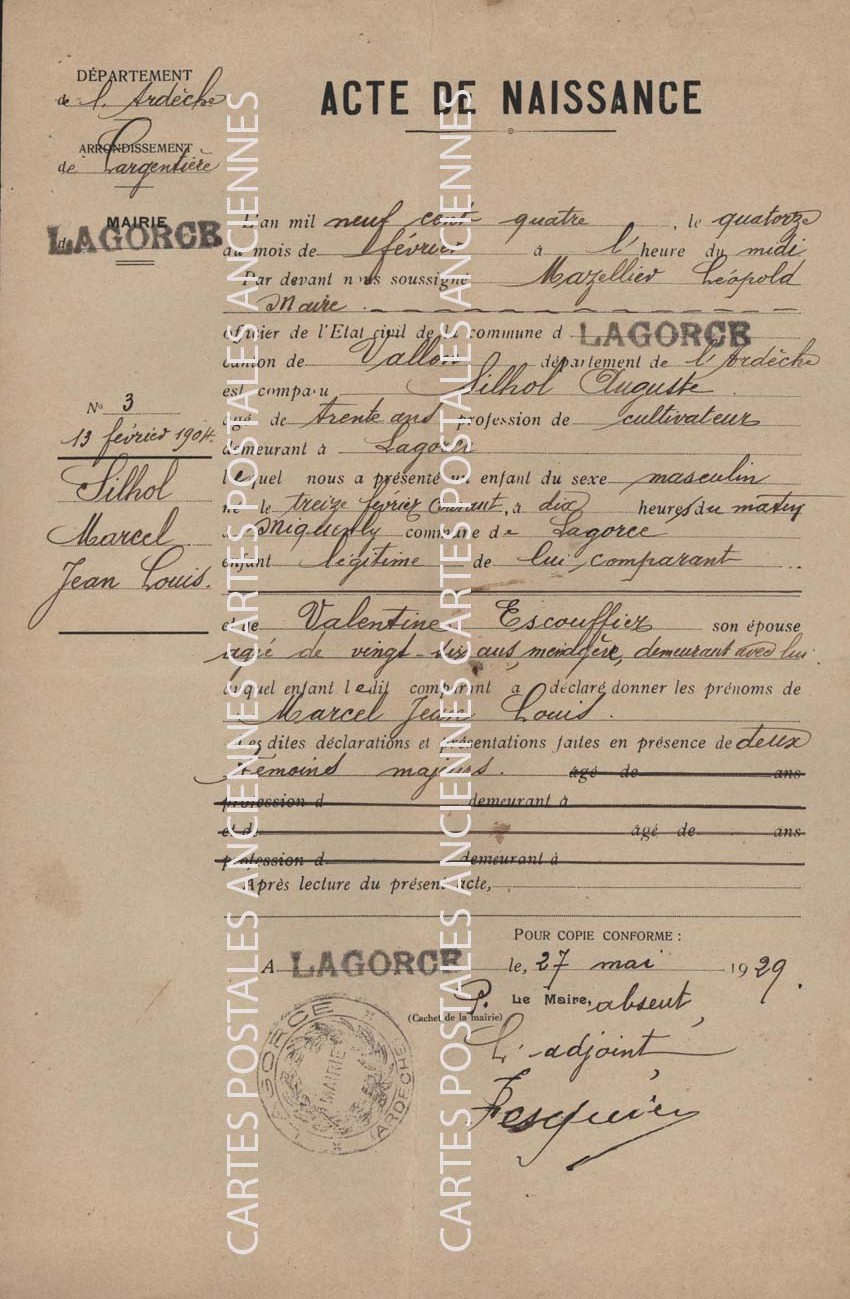 DÉPARTEMENT
de l'Ardèche
ARRONDISSEMENT
de Largentière
MAIRIE
de LAGORCE
N° 3
13 février 1904.
Silhol
Marcel
Jean Louis.
ACTE DE NAISSANCE
L'an mil neuf cent quatre, le quatorze
du mois de février à l'heure du midi
Par devant nous soussigné Mazellier Léopold
Maire.
officier de l'Etat civil de la commune d LAGORCE
canton de Vallon département de l'Ardèche
est comparu Silhol Auguste.
âgé de trente ans profession de cultivateur
demeurant à Lagorce
lequel nous a présenté un enfant du sexe masculin
né le treize février courant, à dix heures du matin
à commune de Lagorce
enfant légitime de lui, comparant
et de Valentine Escouffier son épouse
agée de vingt-six ans, ménagère, demeurant avec lui.
auquel enfant ledit comparant a déclaré donner les prénoms de
Marcel Jean Louis.
Les dites déclarations et présentations faites en présence de deux
témoins majeurs. âgé de ans
profession d demeurant à
et de âgé de ans
profession d demeurant à
Après lecture du présent acte,
POUR COPIE CONFORME :
A LAGORCE le, 27 mai 1929.
P. Le Maire, absent,
(Cachet de la mairie)
L'adjoint
LAGORCE
MAIRIE
(ARDÈCHE)
CARTES POSTALES ANCIENNES CARTES POSTALES ANCIENNES
CARTES POSTALES ANCIENNES CARTES POSTALES ANCIENNES